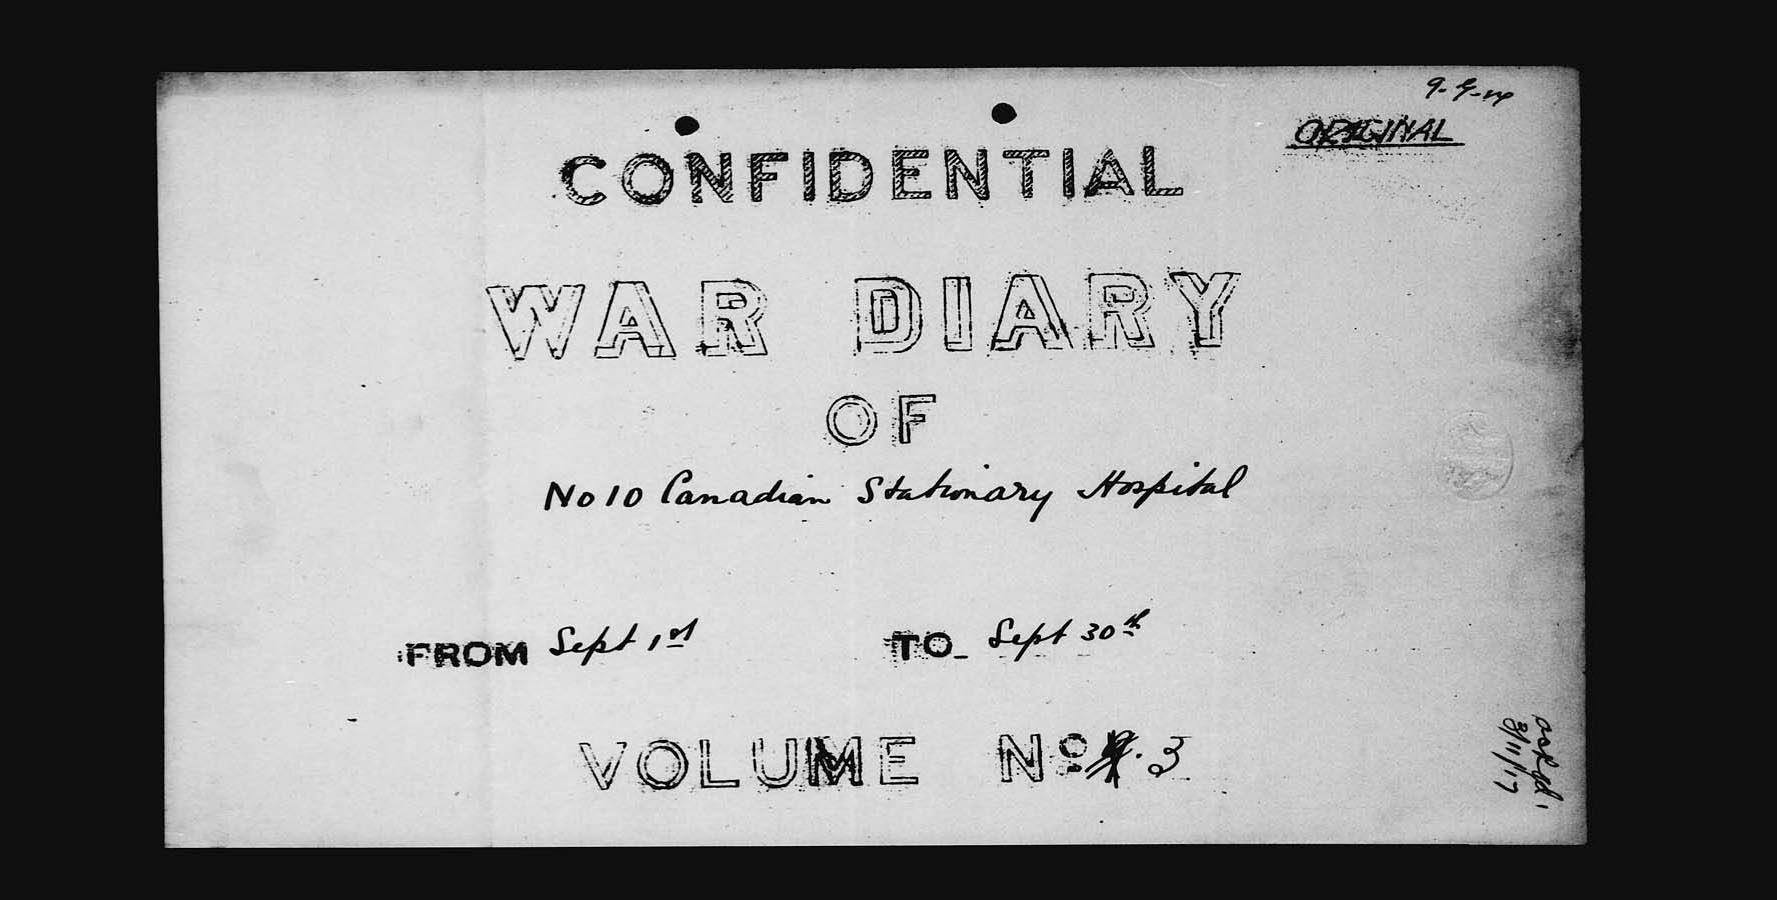 ORIGINAL
CONFIDENTIAL
WAR DIARY
OF
No 10 Canadian Stationary Hospital
FROM Sept 1st TO Sept 30th
VOLUME No. 3
8/11/17